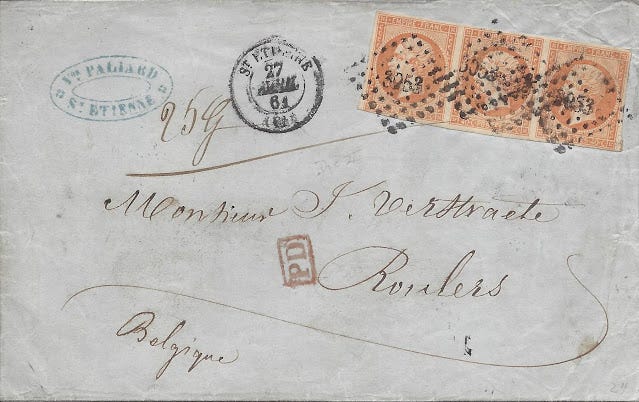 Vve PALIARD
St ETIENNE
St ETIENNE
27
AVRIL
61
EMPIRE FRANC.
EMPIRE FRANC.
EMPIRE FRANC.
3053
3053
3053
25 g
Monsieur J. Verstraete
PD
Roulers
Belgique